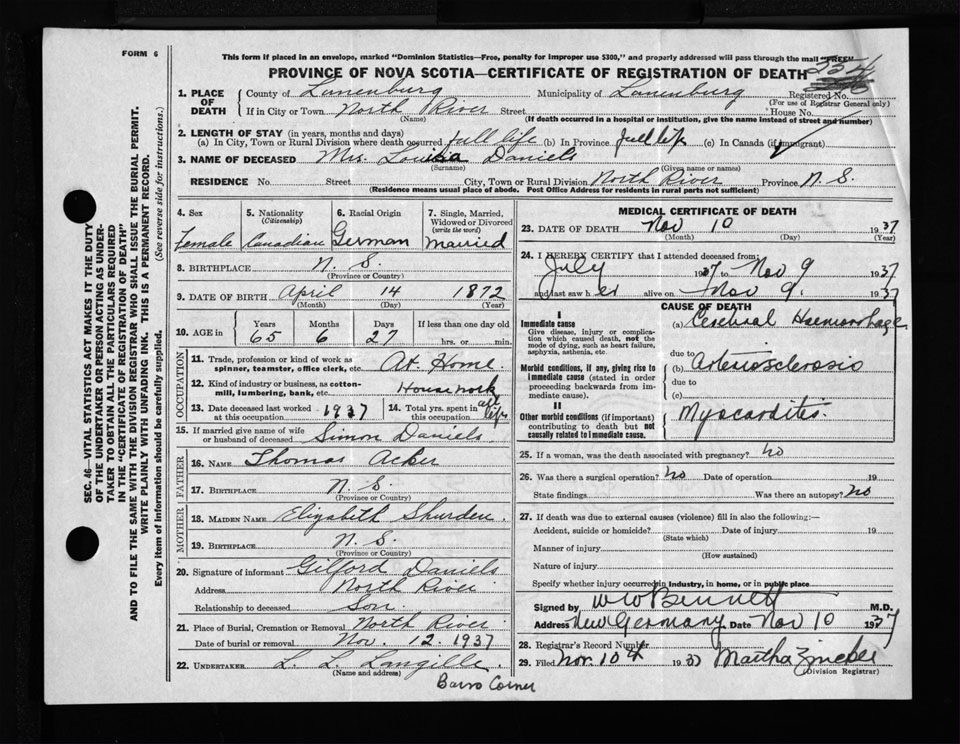 FORM 6
This form if placed in an envelope, marked "Dominion Statistics—Free, penalty for improper use $300," and properly addressed will pass through the mail "FREE"
PROVINCE OF NOVA SCOTIA—CERTIFICATE OF REGISTRATION OF DEATH
1. PLACE OF DEATH
County of Lunenburg Municipality of Lunenburg Registered No.
(For use of Registrar General only)
If in City or Town North River Street House No.
(Name) (If death occurred in a hospital or institution, give the name instead of street and number)
2. LENGTH OF STAY (in years, months and days)
(a) In City, Town or Rural Division where death occurred full life (b) In Province full life (c) In Canada (if immigrant)
3. NAME OF DECEASED Mrs. Louisa Daniels
(Surname) (Given name or names)
RESIDENCE No. Street City, Town or Rural Division North River Province N.S.
(Residence means usual place of abode. Post Office Address for residents in rural parts not sufficient)
4. Sex Female
5. Nationality (Citizenship) Canadian
6. Racial Origin German
7. Single, Married, Widowed or Divorced (write the word) Married
8. BIRTHPLACE N.S.
(Province or Country)
9. DATE OF BIRTH April 14 1872
(Month) (Day) (Year)
10. AGE in Years 65 Months 6 Days 27 If less than one day old hrs. or min.
OCCUPATION
11. Trade, profession or kind of work as spinner, teamster, office clerk, etc. At Home
12. Kind of industry or business, as cotton-mill, lumbering, bank, etc. House work
13. Date deceased last worked at this occupation 1937
14. Total yrs. spent in this occupation all life
15. If married give name of wife or husband of deceased Simon Daniels.
FATHER
16. NAME Thomas Acker
17. BIRTHPLACE N.S.
(Province or Country)
MOTHER
18. MAIDEN NAME Elizabeth
19. BIRTHPLACE N.S.
(Province or Country)
20. Signature of informant Gilford Daniels
Address North River
Relationship to deceased Son.
21. Place of Burial, Cremation or Removal North River
Date of burial or removal Nov. 12. 1937
22. UNDERTAKER L. L. Langille.
(Name and address)
Barss Corner
MEDICAL CERTIFICATE OF DEATH
23. DATE OF DEATH Nov 10 1937
(Month) (Day) (Year)
24. I HEREBY CERTIFY that I attended deceased from:
July 1937 to Nov 9 1937
and last saw her alive on Nov 9. 1937
CAUSE OF DEATH
I
Immediate cause
Give disease, injury or complication which caused death, not the mode of dying, such as heart failure, asphyxia, asthenia, etc.
(a) Cerebral Haemorrhage
due to
Morbid conditions, if any, giving rise to immediate cause (stated in order preceding backwards from immediate cause).
(b) Arteriosclerosis
due to
(c)
II
Other morbid conditions (if important) contributing to death but not causally related to immediate cause.
Myocarditis.
25. If a woman, was the death associated with pregnancy? No
26. Was there a surgical operation? No Date of operation 19
State findings Was there an autopsy? No
27. If death was due to external causes (violence) fill in also the following:—
Accident, suicide or homicide? Date of injury 19
(State which)
Manner of injury
(How sustained)
Nature of injury
Specify whether injury occurred in industry, in home, or in public place
Signed by W W Bennett M.D.
Address New Germany Date Nov 10 1937
28. Registrar's Record Number
29. Filed Nov. 10th 1937 Martha
(Division Registrar)
SEC. 46—VITAL STATISTICS ACT MAKES IT THE DUTY
OF THE UNDERTAKER OR PERSON ACTING AS UNDER-
TAKER TO OBTAIN ALL THE PARTICULARS REQUIRED
IN THE "CERTIFICATE OF REGISTRATION OF DEATH"
AND TO FILE THE SAME WITH THE DIVISION REGISTRAR WHO SHALL ISSUE THE BURIAL PERMIT.
WRITE PLAINLY WITH UNFADING INK. THIS IS A PERMANENT RECORD.
Every item of information should be carefully supplied. (See reverse side for instructions.)